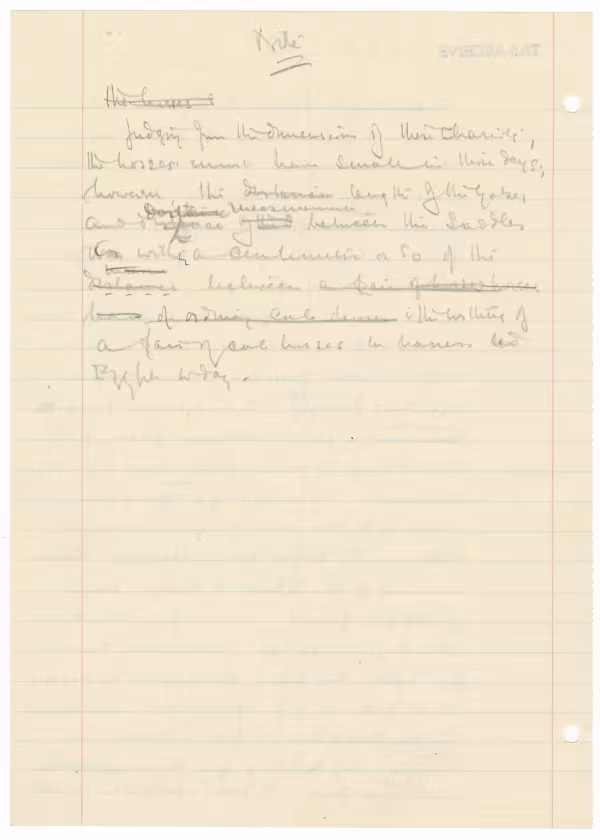 Note
The horses
Judging from the dimensions of these Chariots,
the horses must have small in those days,
however the distance length of the yokes,
distance measurement
and space of the between the Saddles
is within a centimeter or so of the
distance between a pair of
of ordinary cab horses the withers of
a pair of cab horses in harness
Egypt today.
TAA ARCHIVE